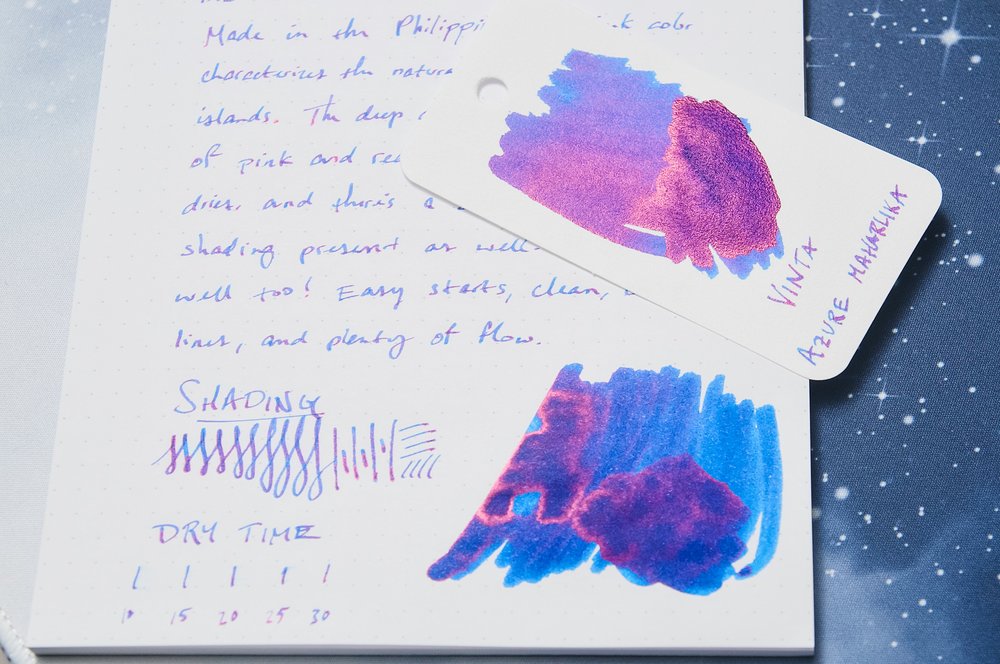 Made in the Philippi
color
characterizes the natura
islands. The deep
of pink and re
dries, and there's a
shading present as well.
well too! Easy starts, clean,
lines, and plenty of flow.
SHADING
DRY TIME
10 15 20 25 30
VINTA
AZURE MAHARLIKA